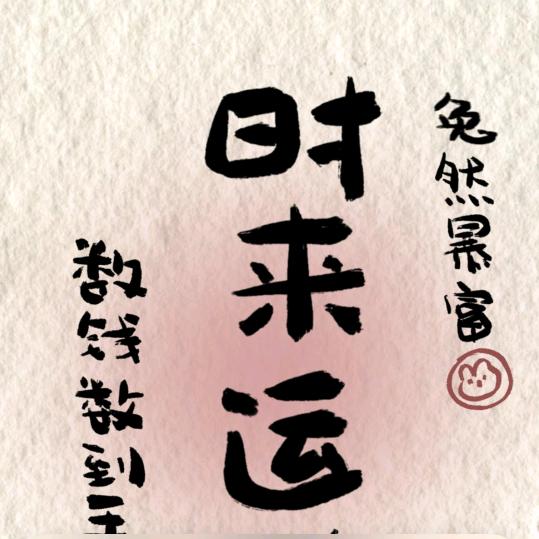 兔然暴富
时来运
数钱数到